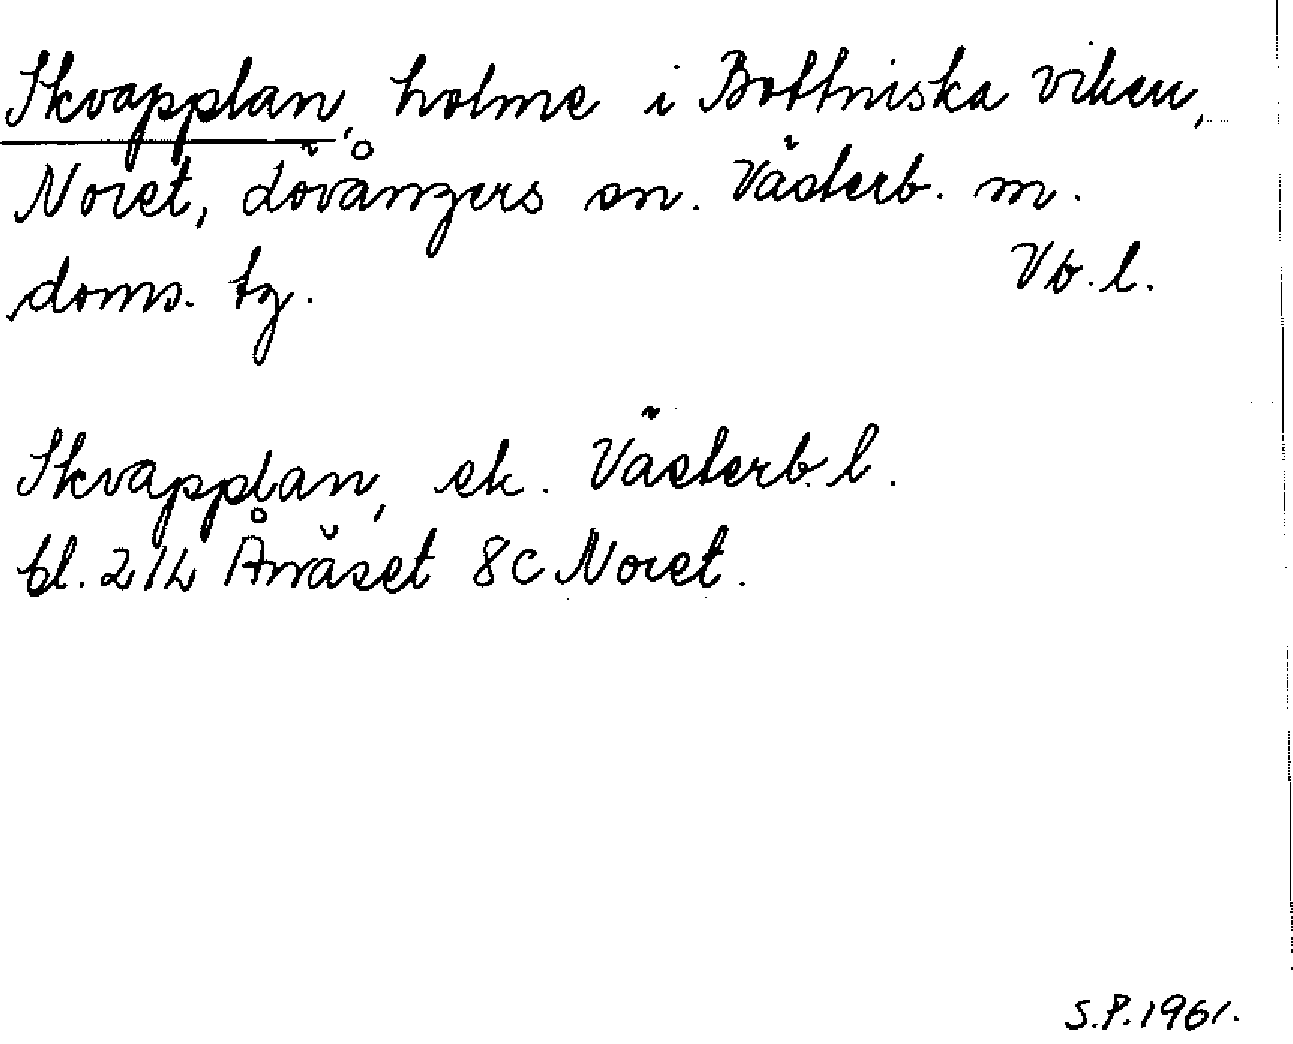 Skvapplan, holme i Bottniska viken,
Noret, Lövångers sn. Västerb. m.
doms. tg. Vb. l.
Skvapplan, ek. Västerb. l.
bl. 21h Ånäset 8c Noret.
S.P. 1961.